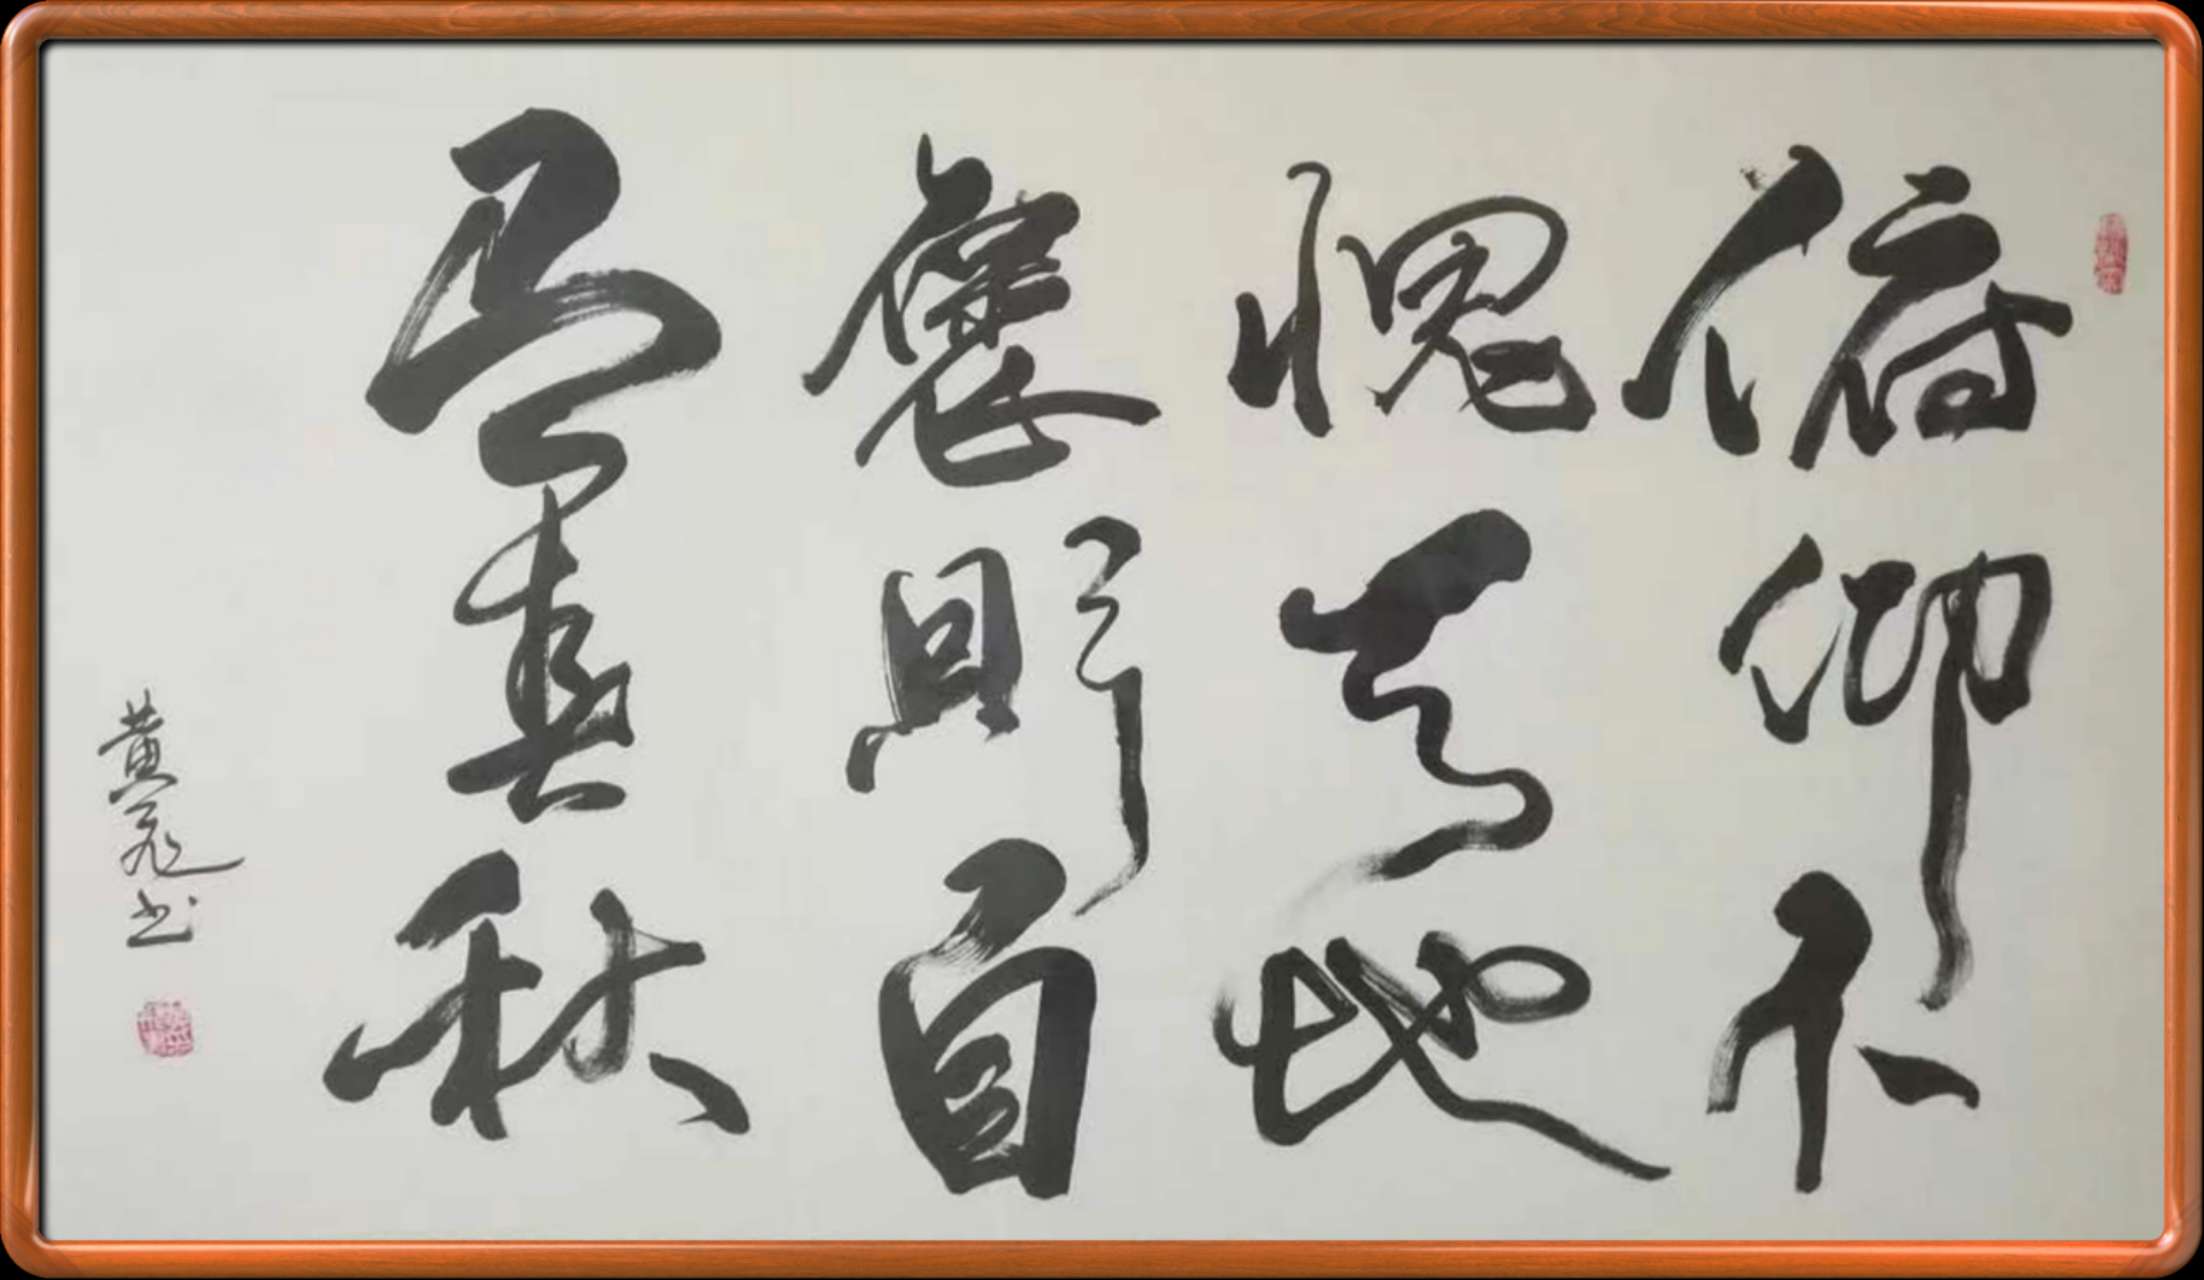 俯仰不
愧天地
褒貶自
有春秋
黄书